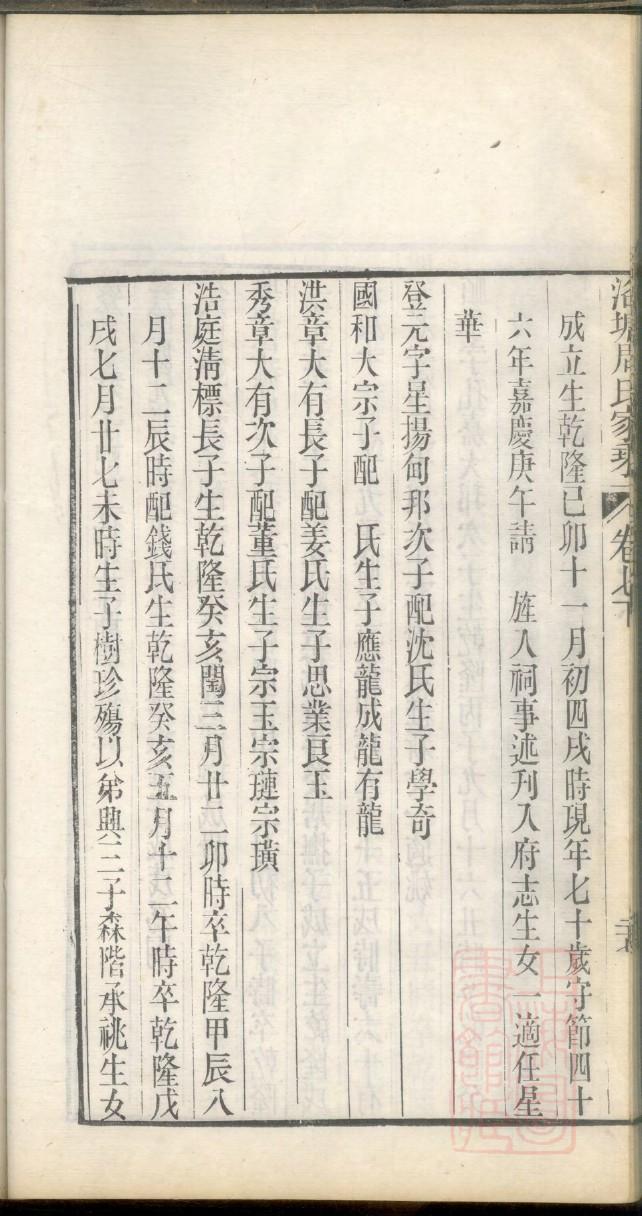 洛塘周氏家乘 卷七下
成立生乾隆己卯十一月初四戌時現年七十歲守節四十
六年嘉慶庚午請 旌入祠事述刊入府志生女一適任星
華
登元字星揚甸邦次子配沈氏生子學奇
國和大宗子配 氏生子應龍成龍有龍
洪章大有長子配姜氏生子思業良玉
秀章大有次子配董氏生子宗玉宗璉宗璜
浩庭淸標長子生乾隆癸亥閏三月廿二卯時卒乾隆甲辰八
月十二辰時配錢氏生乾隆癸亥五月十二午時卒乾隆戊
戌七月廿七未時生子樹珍殤以弟興三子森階承祧生女